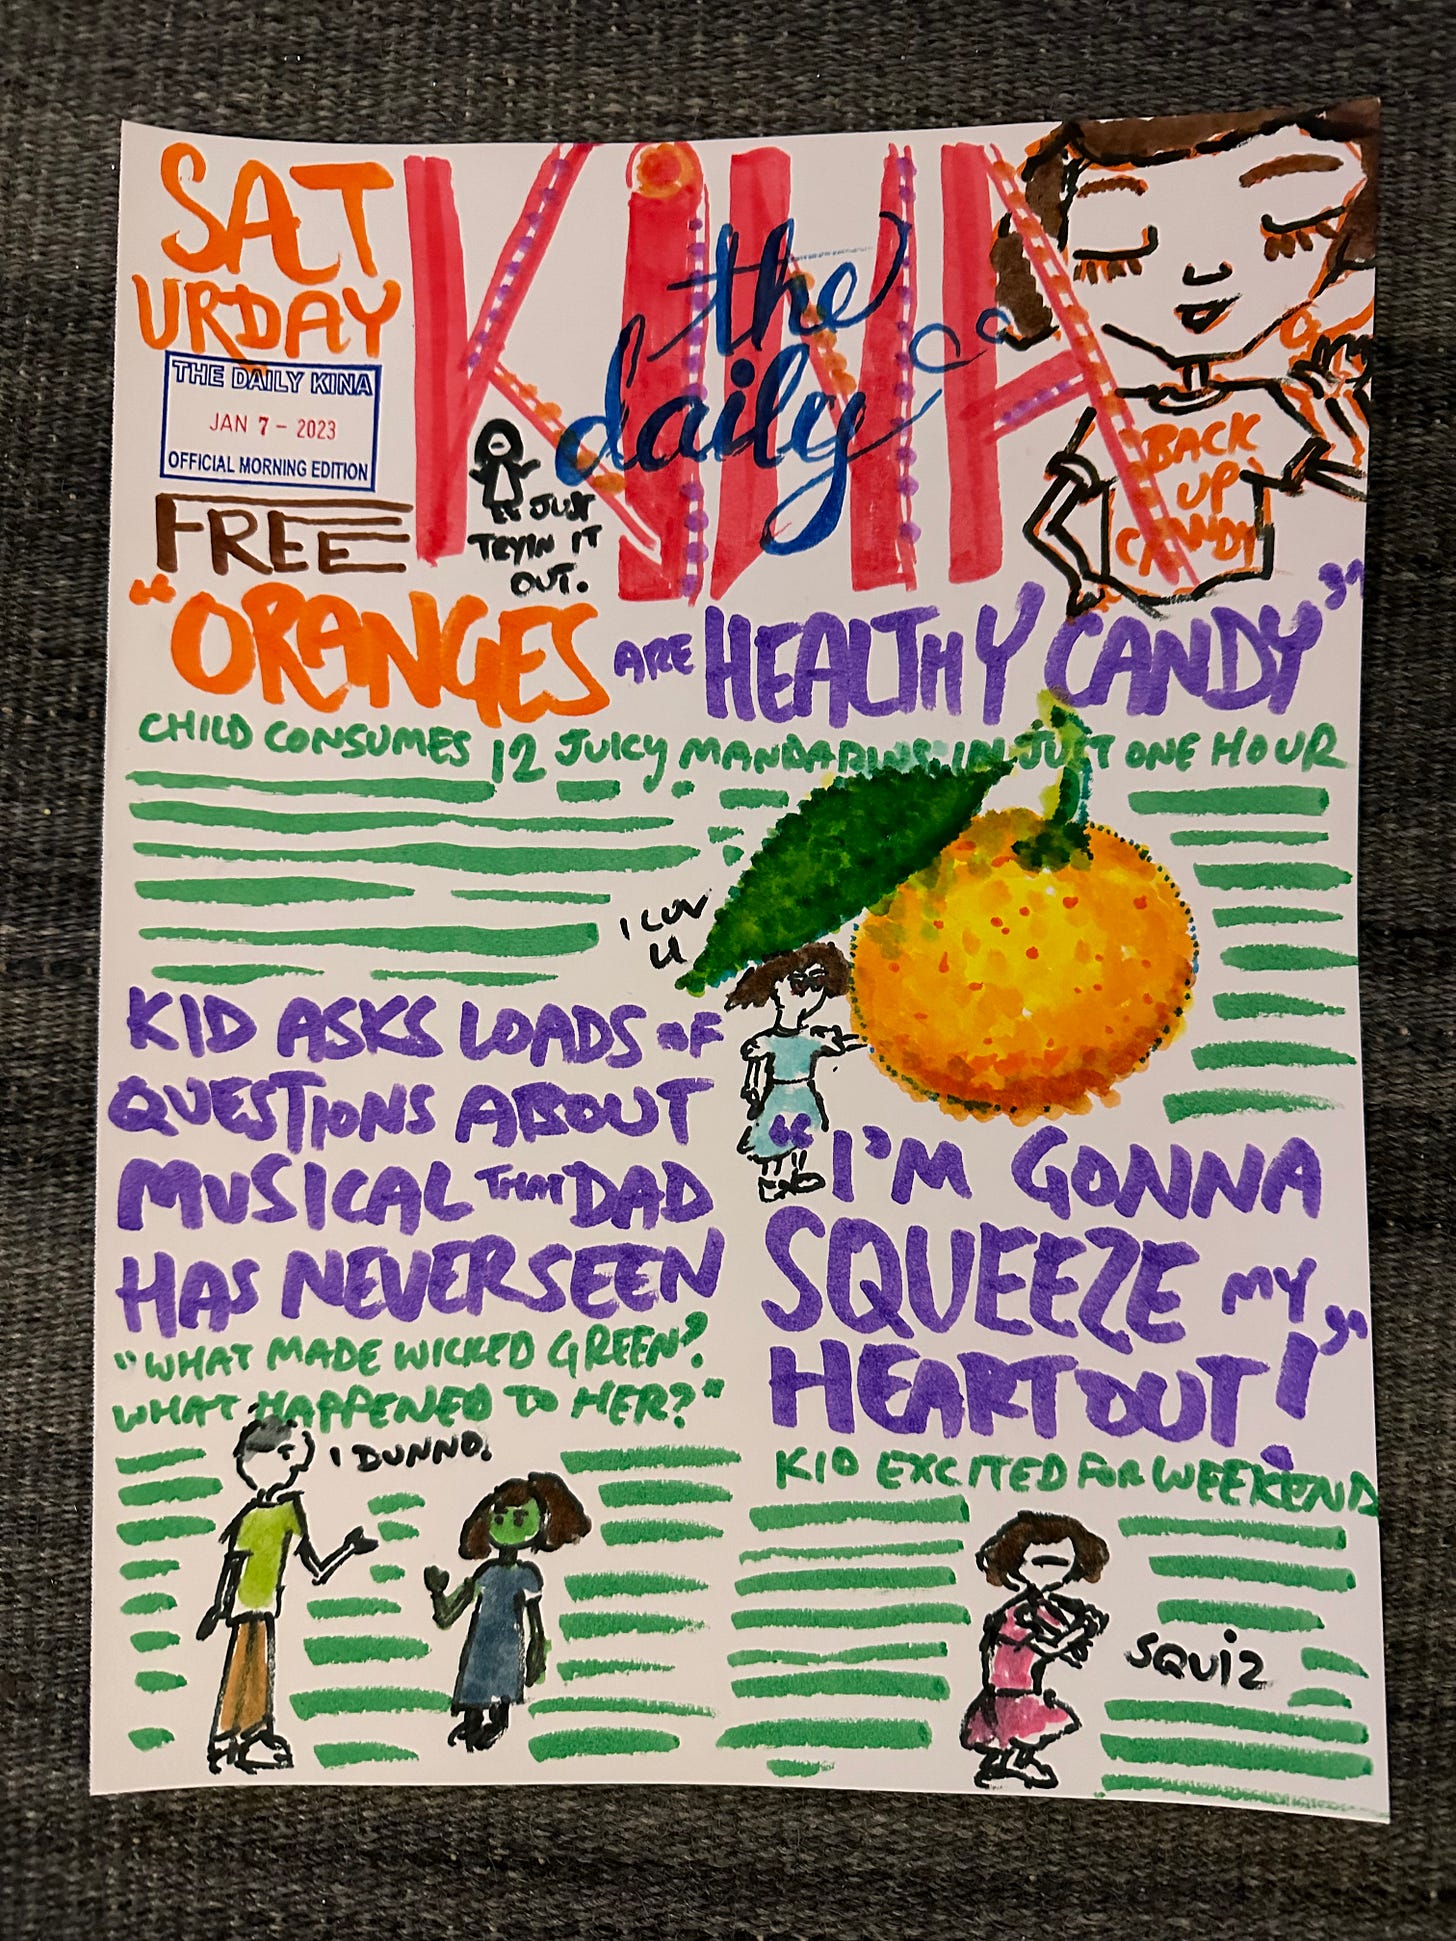 SAT
URDAY
THE DAILY KINA
JAN 7 - 2023
OFFICIAL MORNING EDITION
FREE
KINA
the
daily
JUST
TRYIN IT
OUT.
BACK
UP
CANDY
"ORANGES ARE HEALTHY CANDY"
CHILD CONSUMES 12 JUICY MANDARINS IN JUST ONE HOUR
I LUV
U
KID ASKS LOADS OF
QUESTIONS ABOUT
MUSICAL THAT DAD
HAS NEVER SEEN
"WHAT MADE WICKED GREEN?
WHAT HAPPENED TO HER?"
I DUNNO.
"I'M GONNA
SQUEEZE MY
HEART OUT!"
KID EXCITED FOR WEEKEND
SQUIZ